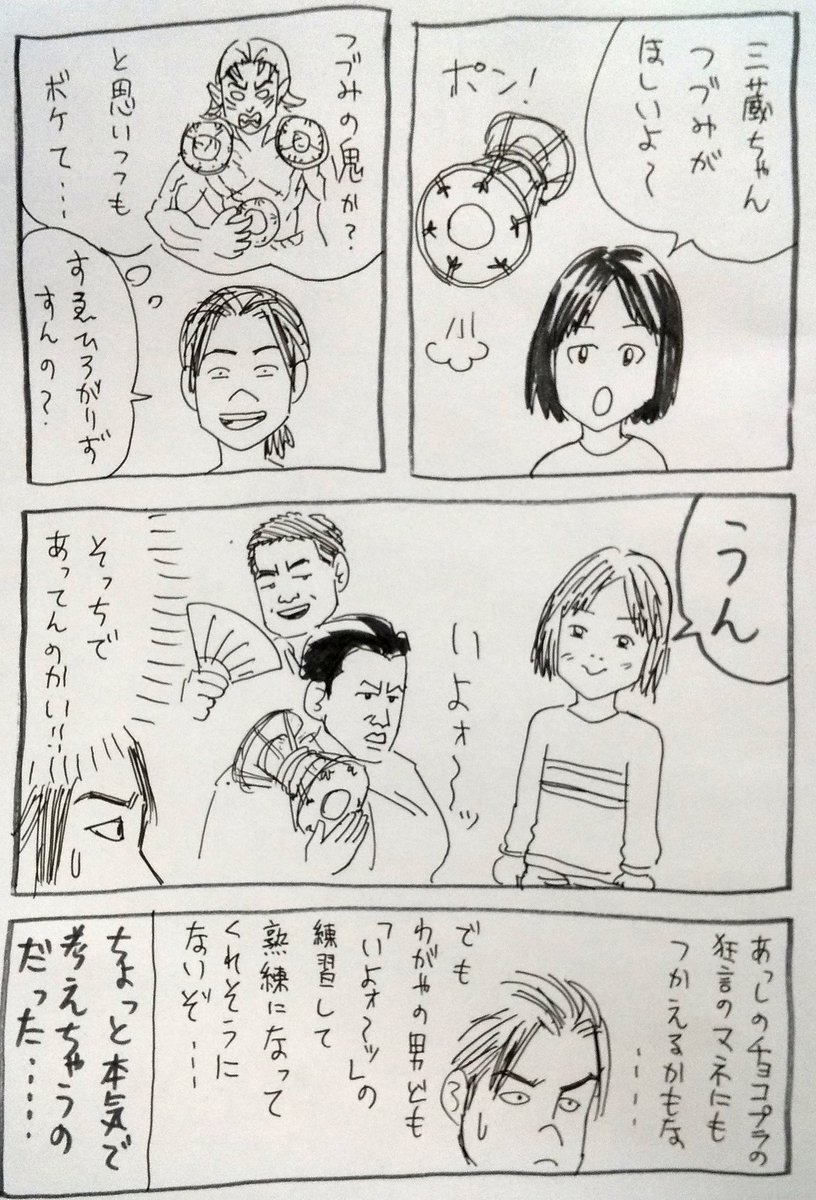 三蔵ちゃん
つづみが
ほしいよ〜
ポン!
つづみの鬼か?
と思いつつも
ボケて…
すゑひろがりず
すんの?
うん
いよォ〜ッ
そっちで
あってんのかい!!
あっしのチョコプラの
狂言のマネにも
つかえるかもな
……
でも
わがやの男ども
「いよォ〜ッ」の
練習して
熟練になって
くれそうに
ないぞ……
ちょっと本気で
考えちゃうの
だった……